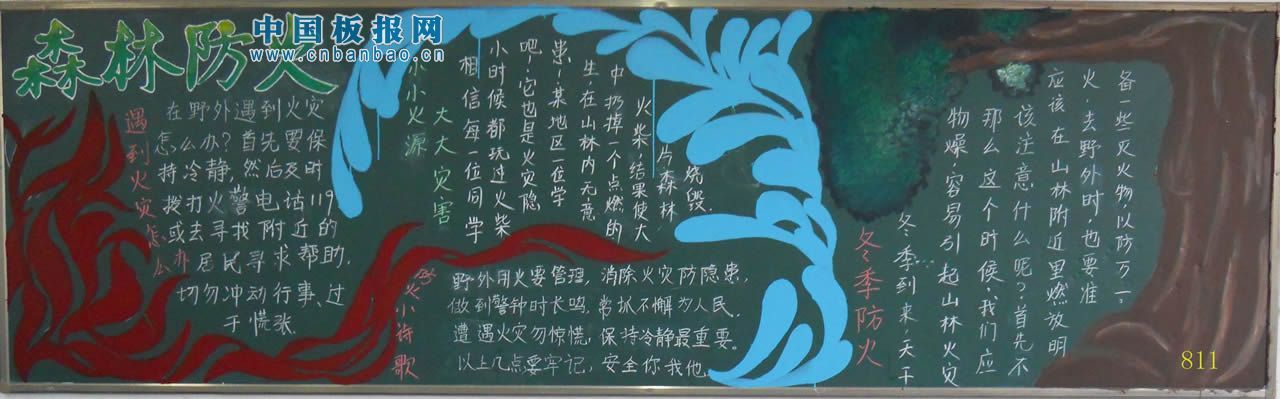 森林防火
中国板报网
www.cnbanbao.cn
遇到火灾怎么办
在野外遇到火灾
怎么办?首先要保
持冷静,然后及时
拨打火警电话119
或去寻找附近的
居民寻求帮助.
切勿冲动行事、过
于慌张.
小小火源
大大灾害
相信每一位同学
小时候都玩过火柴
吧!它也是火灾隐
患!某地区一位学
生在山林内无意
中扔掉一个点燃的
火柴,结果使大
片森林
烧毁.
火小诗歌
野外用火要管理,消除火灾防隐患,
做到警钟时长鸣,常抓不懈为人民.
遭遇火灾勿惊慌,保持冷静最重要。
以上几点要牢记,安全你我他.
冬季防火
冬季到来天干
物燥,容易引起山林火灾
那么这个时候,我们应
该注意什么呢?首先不
应该在山林附近里燃放明
火.去野外时,也要准
备一些灭火物,以防万一.
811